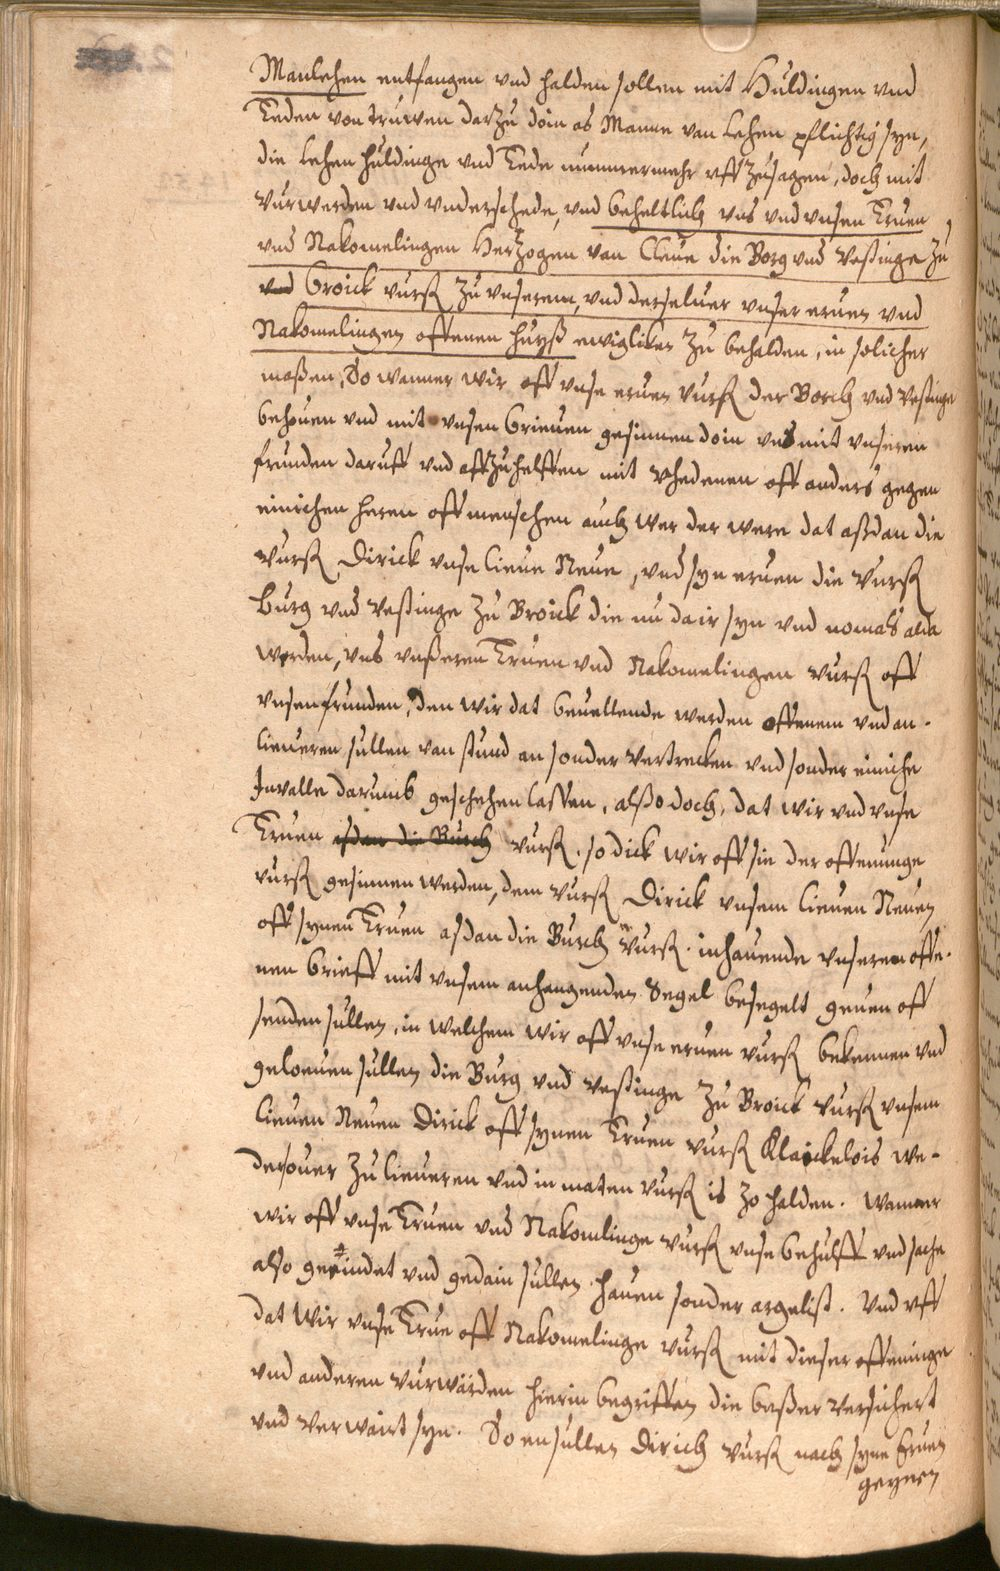 Manlehen entfangen vnd halden sollen mit Huldingen vnd
Eeden von truwen darzu doin as Manne van Lehen pflichtig syn,
die Lehen huldinge vnd Eede nummermehr vff zusagen, doch mit
vurwerden vnd vnderschede, vnd beheltlich vns vnd vnsen Eruen
vnd Nakomelingen Hertzogen van Cleue die Borg vnd Vestinge zu
vnd Broick vurß zu vnserem, vnd derseluer vnser eruen vnd
Nakomelingen offenen huyß ewigliken zu behalden, in solicher
maßen, So wanner wir off vnse eruen vurß der Borch vnd Vestinge
behouen vnd mit vnsen brieuen gesinnen doin vns mit vnseren
frunden daruff vnd aff zuhelffen mit vhedenen off anders gegen
einichen heren off menschen auch wer der were dat aßdan die
vurß Dirick vnse lieue Neue, vnd syn eruen die vurß
Burg vnd Vestinge zu Broick die nu dair syn vnd nomals alda
werden, vns vnßeren Eruen vnd Nakomelingen vurß off
vnsen frunden, den wir dat beuellende werden offenem vnd an-
lieueren sullen van stund an sonder vertrecken vnd sonder einiche
Invalle darumb geschehen lassen, alßo doch, dat wir vnd vnse
Eruen aßdan die Burch vurß. so dick wir off sie der offenunge
vurß gesinnen werden, dem vurß Dirick vnsem lieuen Neuen
off synen Eruen aßdan die Burch vurß. inhauende vnseren offe-
nen brieff mit vnsem anhangenden Segel besegelt geuen off
senden sullen, in welchem wir off vnse eruen vurß bekennen vnd
geloeuen sullen die Burg vnd Vestinge zu Broick vurß vnsem
lieuen Neuen Dirick off synen Eruen vurß Klaickelois we-
derouer zu lieueren vnd in maten vurß is zo halden. Wanner
wir off vnse Eruen vnd Nakomlinge vurß vnse behulff vnd sache
also geeindet vnd gedain sullen hauen sonder argelist. Vnd vff
dat wir vnse Erue off Nakomelinge vurß mit dieser offeninge
vnd anderen vurwarden hierin begriffen die baßer versichert
vnd verwairt syn. So ensullen Dirich vurß noch syne Eruen
geynen